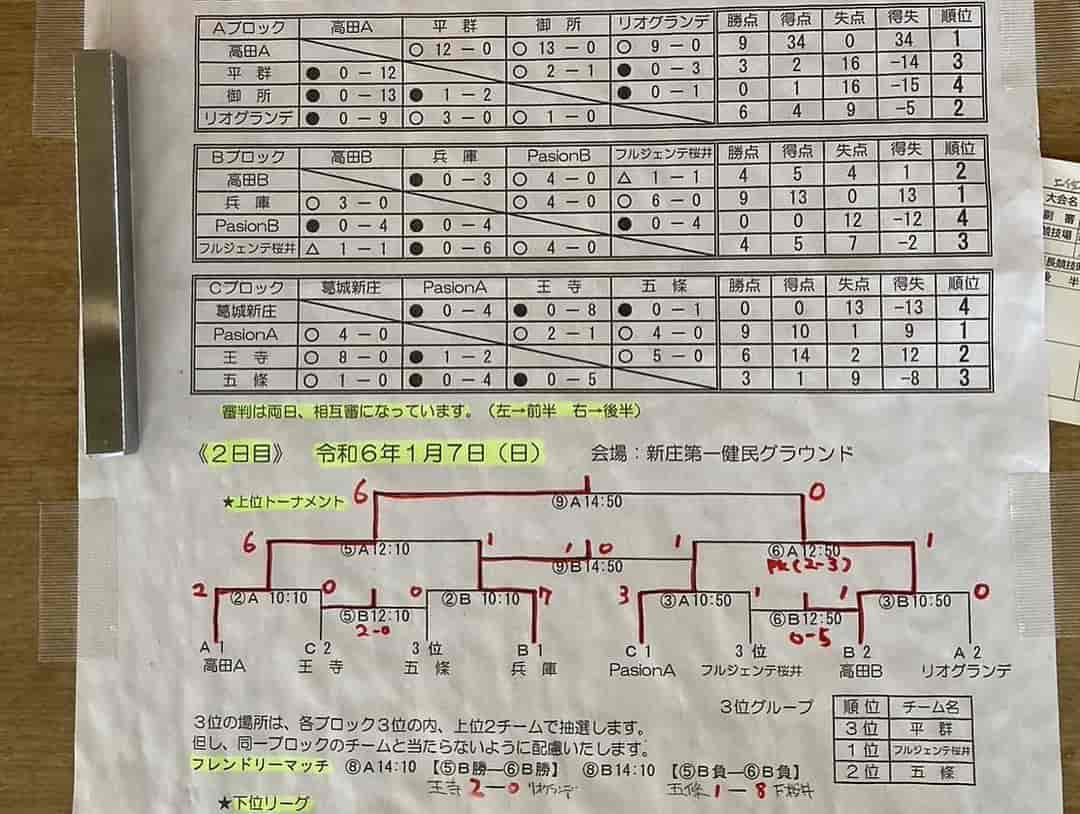 Aブロック 高田A 平群 御所 リオグランデ 勝点 得点 失点 得失 順位
高田A ○ 12 － 0 ○ 13 － 0 ○ 9 － 0 9 34 0 34 1
平群 ● 0 － 12 ○ 2 － 1 ● 0 － 3 3 2 16 -14 3
御所 ● 0 － 13 ● 1 － 2 ● 0 － 1 0 1 16 -15 4
リオグランデ ● 0 － 9 ○ 3 － 0 ○ 1 － 0 6 4 9 -5 2
Bブロック 高田B 兵庫 PasionB フルジェンテ桜井 勝点 得点 失点 得失 順位
高田B ● 0 － 3 ○ 4 － 0 △ 1 － 1 4 5 4 1 2
兵庫 ○ 3 － 0 ○ 4 － 0 ○ 6 － 0 9 13 0 13 1
PasionB ● 0 － 4 ● 0 － 4 ● 0 － 4 0 0 12 -12 4
フルジェンテ桜井 △ 1 － 1 ● 0 － 6 ○ 4 － 0 4 5 7 -2 3
Cブロック 葛城新庄 PasionA 王寺 五條 勝点 得点 失点 得失 順位
葛城新庄 ● 0 － 4 ● 0 － 8 ● 0 － 1 0 0 13 -13 4
PasionA ○ 4 － 0 ○ 2 － 1 ○ 4 － 0 9 10 1 9 1
王寺 ○ 8 － 0 ● 1 － 2 ○ 5 － 0 6 14 2 12 2
五條 ○ 1 － 0 ● 0 － 4 ● 0 － 5 3 1 9 -8 3
審判は両日、相互審になっています。（左→前半 右→後半）
《２日目》 令和６年１月７日（日） 会場：新庄第一健民グラウンド
★上位トーナメント 6 ⑨A14:50 0
6 ⑤A12:10 1 1 0 1 ⑥A12:50 1
⑨B14:50 PK(2-3)
2 ②A 10:10 0 0 ②B 10:10 7 3 ③A10:50 1 1 ③B10:50 0
⑤B12:10 ⑥B12:50
2-0 0-5
A1 C2 3位 B1 C1 3位 B2 A2
高田A 王寺 五條 兵庫 PasionA フルジェンテ桜井 高田B リオグランデ
３位グループ 順位 チーム名
3位 平群
1位 フルジェンテ桜井
2位 五條
３位の場所は、各ブロック３位の内、上位２チームで抽選します。
但し、同一ブロックのチームと当たらないように配慮いたします。
フレンドリーマッチ ⑧A14:10 【⑤B勝―⑥B勝】 ⑧B14:10 【⑤B負―⑥B負】
王寺 2－0 リオグランデ 五條 1－8 F桜井
★下位リーグ
大会名
副審
後半